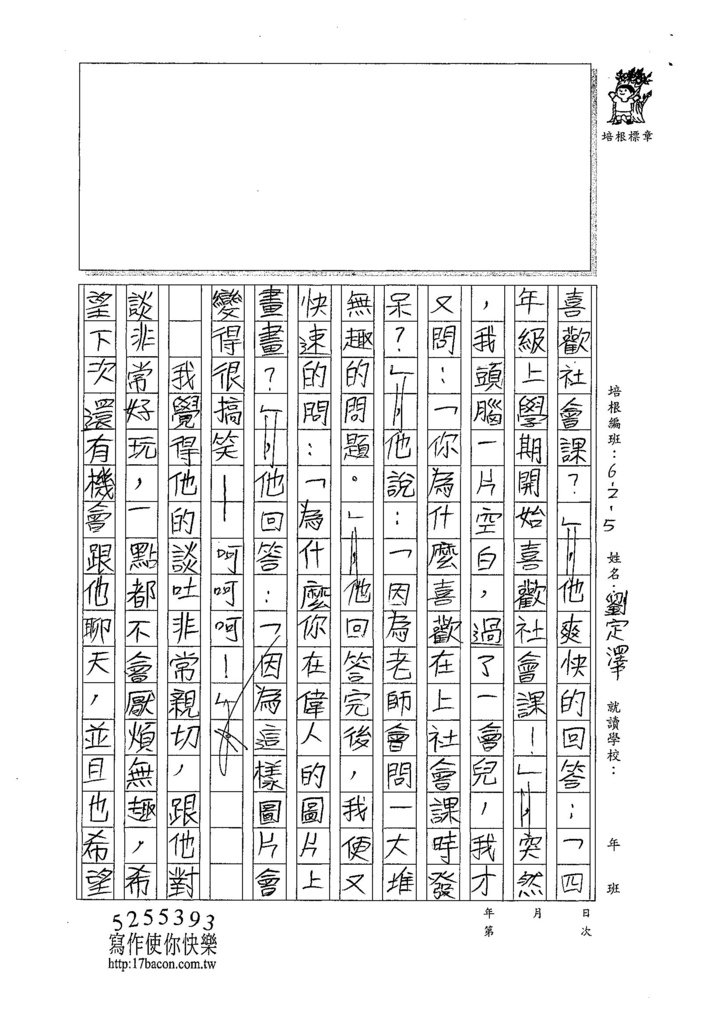 培根標章
培根編班：6-2-5 姓名：劉定澤 就讀學校： 年 班
喜歡社會課？」他爽快的回答：「四
年級上學期開始喜歡社會課！」突然
，我頭腦一片空白，過了一會兒，我才
又問：「你為什麼喜歡在上社會課時發
呆？」他說：「因為老師會問一大堆
無趣的問題。」他回答完後，我便又
快速的問：「為什麼你在偉人的圖片上
畫畫？」他回答：「因為這樣圖片會
變得很搞笑—呵呵呵！」
我覺得他的談吐非常親切，跟他對
談非常好玩，一點都不會厭煩無趣，希
望下次還有機會跟他聊天，並且也希望
年 月 日
第 次
5255393
寫作使你快樂
http:17bacon.com.tw